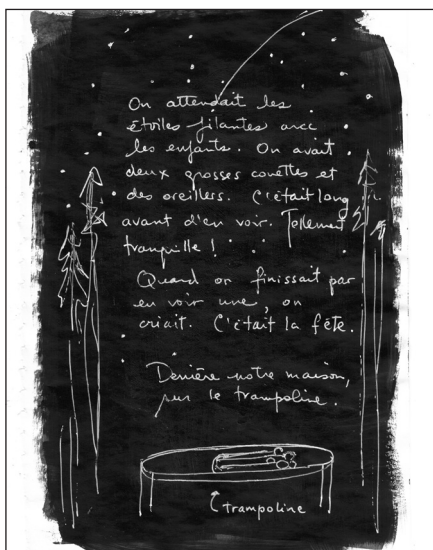 On attendait les
étoiles filantes avec
les enfants. On avait
deux grosses couettes et
des oreillers. C'était long
avant d'en voir. Tellement
tranquille !
Quand on finissait par
en voir une, on
criait. C'était la fête.
Derrière notre maison,
sur le trampoline.
trampoline